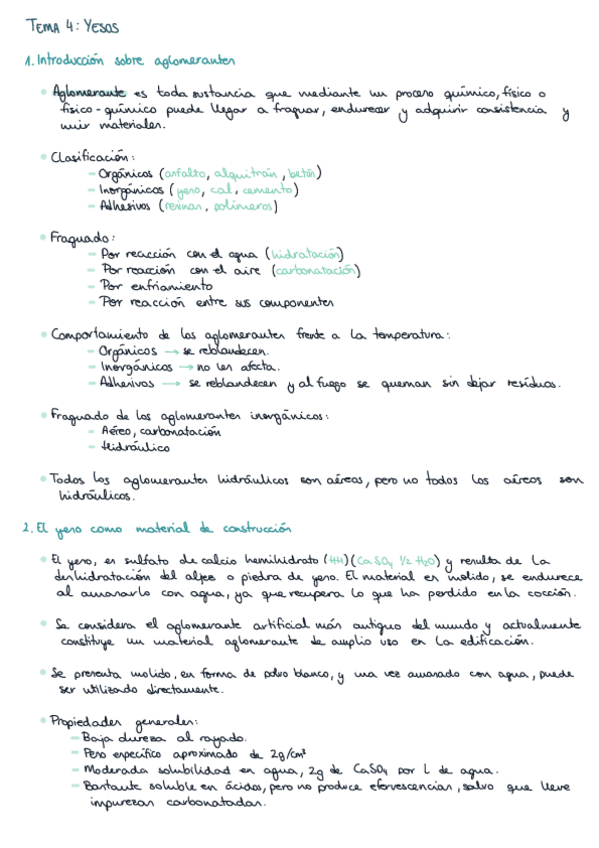 TEMA 4: YESOS
1. Introducción sobre aglomerantes
• Aglomerante es toda sustancia que mediante un proceso químico, físico o
físico-químico puede llegar a fraguar, endurecer y adquirir consistencia y
unir materiales.
• Clasificación:
- Orgánicos (asfalto, alquitrán, betún)
- Inorgánicos (yeso, cal, cemento)
- Adhesivos (resinas, polímeros)
• Fraguado:
- Por reacción con el agua (hidratación)
- Por reacción con el aire (carbonatación)
- Por enfriamiento
- Por reacción entre sus componentes
• Comportamiento de los aglomerantes frente a la temperatura:
- Orgánicos → se reblandecen.
- Inorgánicos → no les afecta.
- Adhesivos → se reblandecen y al fuego se queman sin dejar resíduos.
• Fraguado de los aglomerantes inorgánicos:
- Aéreo, carbonatación
- Hidráulico
• Todos los aglomerantes hidráulicos son aéreos, pero no todos los aéreos son
hidráulicos.
2. El yeso como material de construcción
• El yeso, es sulfato de calcio hemihidrato (HH) (CaSO4 1/2 H2O) y resulta de la
deshidratación del aljez o piedra de yeso. El material es molido, se endurece
al amasarlo con agua, ya que recupera lo que ha perdido en la cocción.
• Se considera el aglomerante artificial más antiguo del mundo y actualmente
constituye un material aglomerante de amplio uso en la edificación.
• Se presenta molido, en forma de polvo blanco, y una vez amasado con agua, puede
ser utilizado directamente.
• Propiedades generales:
- Baja dureza al rayado.
- Peso específico aproximado de 2g/cm³
- Moderada solubilidad en agua, 2g de CaSO4 por L de agua.
- Bastante soluble en ácidos, pero no produce efervescencias, salvo que lleve
impurezas carbonatadas.